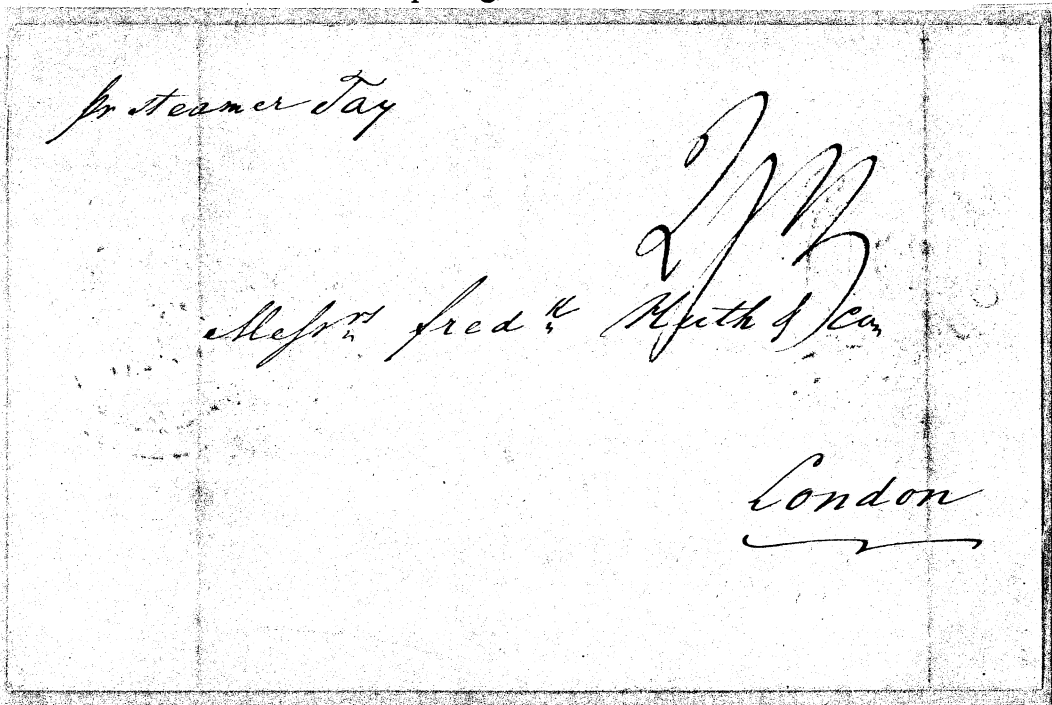 pr steamer Tay
Messrs fredk Huth & Con
London